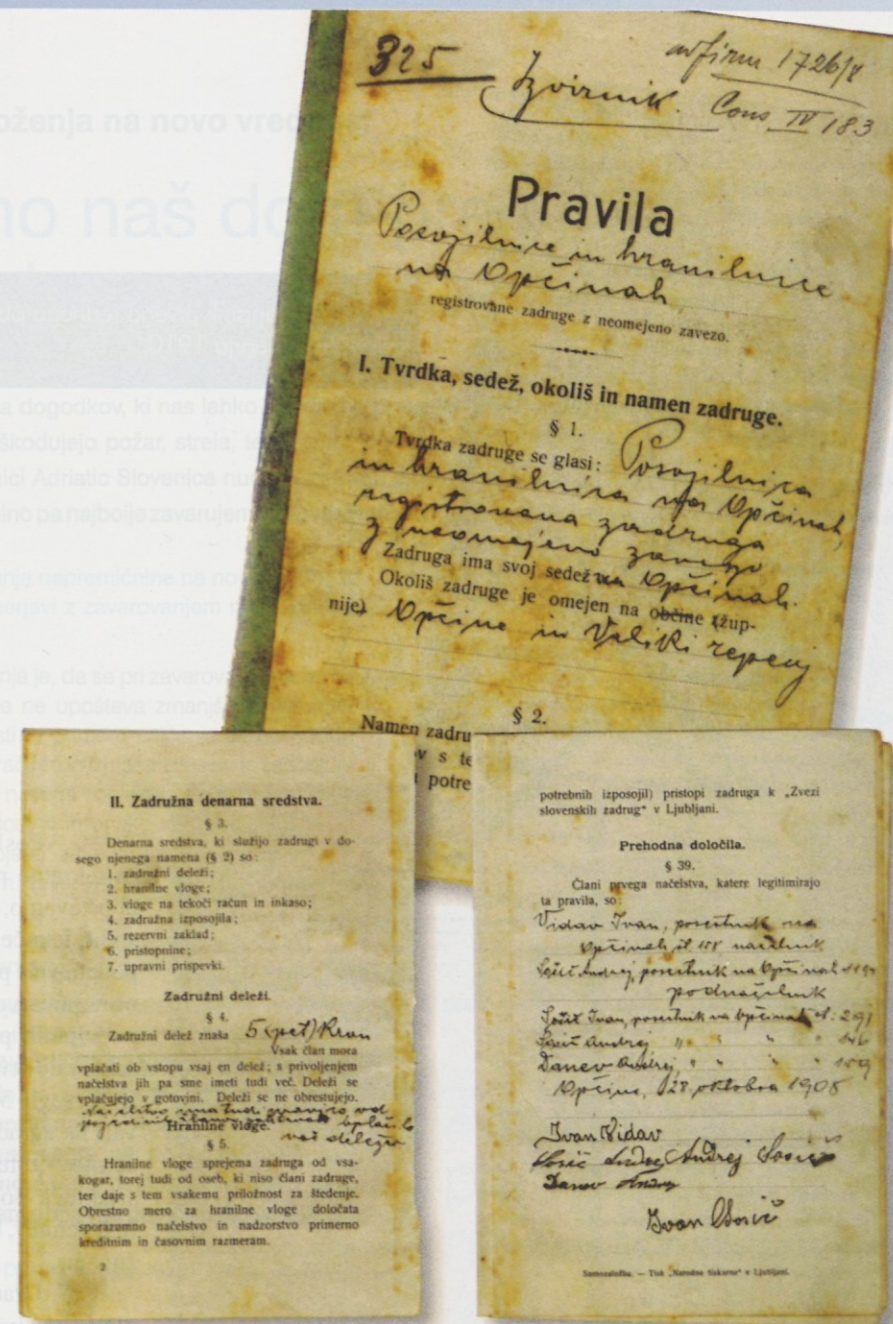 325
ad firm 1726/8
Izvirnik.
Cons IV 183
Pravila
Posojilnice in hranilnice
na Opčinah
registrovane zadruge z neomejeno zavezo.
I. Tvrdka, sedež, okoliš in namen zadruge.
§ 1.
Tvrdka zadruge se glasi: Posojilnica
in hranilnica na Opčinah,
registrovana zadruga
z neomejeno zavezo
Zadruga ima svoj sedež na Opčinah.
Okoliš zadruge je omejen na občine (žup-
nije) Opčine in Veliki repenj
§ 2.
Namen zadru
v s te
potre
II. Zadružna denarna sredstva.
§ 3.
Denarna sredstva, ki služijo zadrugi v do-
sego njenega namena (§ 2) so:
1. zadružni deleži;
2. hranilne vloge;
3. vloge na tekoči račun in inkaso;
4. zadružna izposojila;
5. rezervni zaklad;
6. pristopnine;
7. upravni prispevki.
Zadružni deleži.
§ 4.
Zadružni delež znaša 5 (pet) Kron
Vsak član mora
vplačati ob vstopu vsaj en delež; s privoljenjem
načelstva jih pa sme imeti tudi več. Deleži se
vplačujejo v gotovini. Deleži se ne obrestujejo.
Načelstvo ima tudi pravico od
vplačilo
Hranilne vloge.
več deležev
§ 5.
Hranilne vloge sprejema zadruga od vsa-
kogar, torej tudi od oseb, ki niso člani zadruge,
ter daje s tem vsakemu priložnost za štedenje.
Obrestno mero za hranilne vloge določata
sporazumno načelstvo in nadzorstvo primerno
kreditnim in časovnim razmeram.
2
potrebnih izposojil) pristopi zadruga k „Zvezi
slovenskih zadrug" v Ljubljani.
Prehodna določila.
§ 39.
Člani prvega načelstva, katere legitimirajo
ta pravila, so:
Vidav Ivan, posestnik na
Opčinah št. 158, načelnik
Sosič Andrej, posestnik na Opčinah
podnačelnik
Sosič Ivan, posestnik na Opčinah št. 291
Sosič Andrej " " " " 146
Danev Andrej, " " " " 159
Opčine, 28. oktobra 1908
Ivan Vidav
Sosič Andrej Andrej Sosič
Danev Andrej
Ivan Sosič
Samozaložba. — Tisk „Narodne tiskarne" v Ljubljani.
oženja na novo vred
mo naš do
a dogodkov, ki nas lahko
škodujejo požar, strela,
nici Adriatic Slovenica nu
lno pa najbolje zavarujem
nja nepremičnine na no
menjavi z zavarovanjem
nja je, da se pri zavarov
a ne upošteva zmanjš